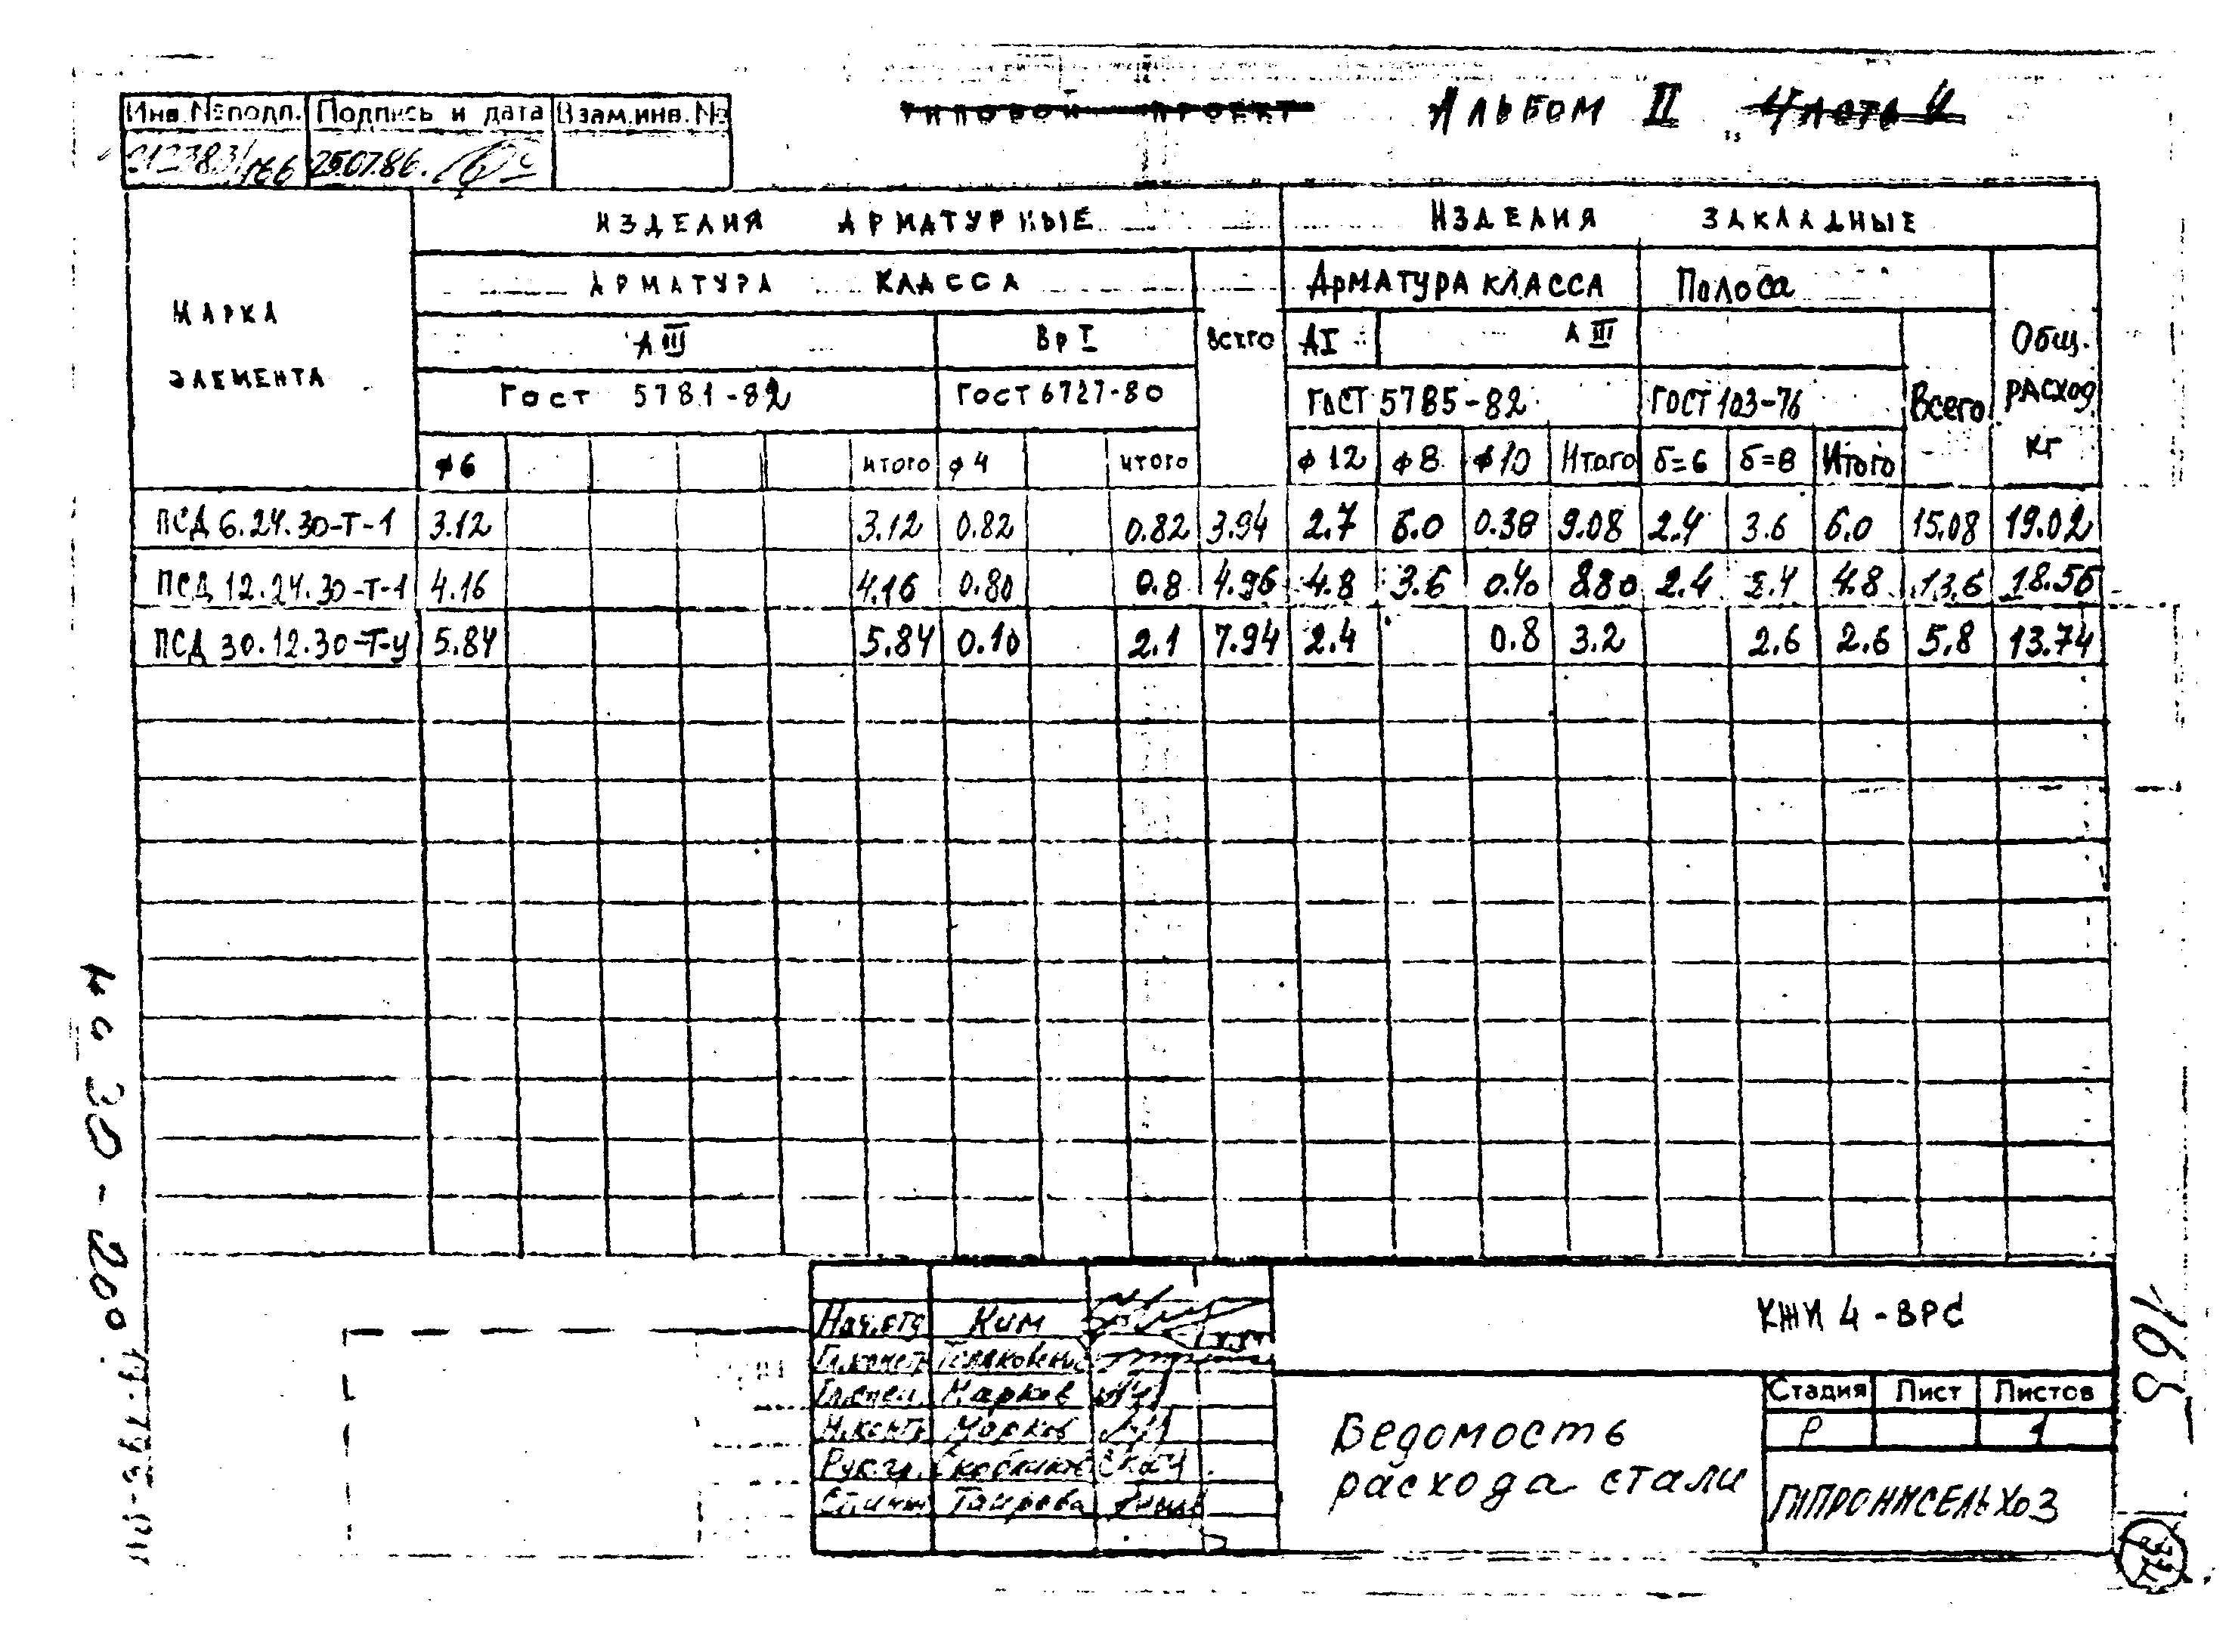 Инв.№подл. Подпись и дата Взам.инв.№
25.07.86.
ТИПОВОЙ ПРОЕКТ
АЛЬБОМ II Часть
МАРКА ЭЛЕМЕНТА
ИЗДЕЛИЯ АРМАТУРНЫЕ ИЗДЕЛИЯ ЗАКЛАДНЫЕ
АРМАТУРА КЛАССА ВСЕГО АРМАТУРА КЛАССА Полоса Всего Общ. РАСХОД КГ
А III Вр I АI А III
ГОСТ 5781-82 ГОСТ 6727-80 ГОСТ 5785-82 ГОСТ 103-76
ф6 ИТОГО ф4 ИТОГО ф12 ф8 ф10 Итого б=6 б=8 Итого
ПСД 6.24.30-Т-1 3.12 3.12 0.82 0.82 3.94 2.7 6.0 0.38 9.08 2.4 3.6 6.0 15.08 19.02
ПСД 12.24.30-Т-1 4.16 4.16 0.80 0.8 4.96 4.8 3.6 0.40 8.80 2.4 2.4 4.8 13.6 18.56
ПСД 30.12.30-Т-у 5.84 5.84 0.10 2.1 7.94 2.4 0.8 3.2 2.6 2.6 5.8 13.74
Нач.отд Ким
Марков
Н.контр Марков
Рук.гр.
Таирова
КЖИ 4-ВРС
Ведомость
расхода стали
Стадия Лист Листов
Р 1
ГИПРОНИСЕЛЬХОЗ
166